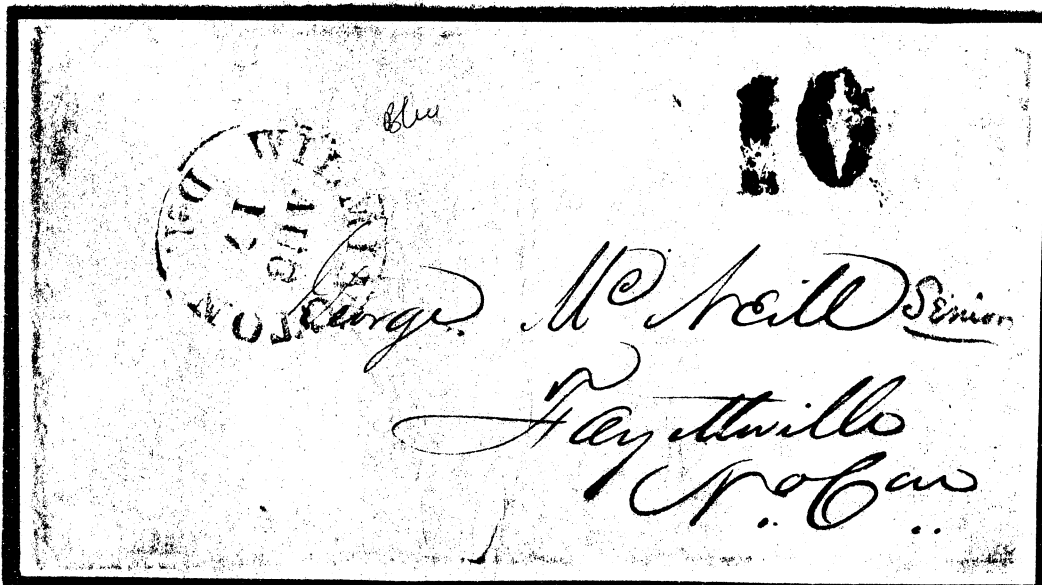 10
Blue
WILMINGTON Del.
AUG
17
George Mc Neill Senior
Fayettville
No. Car